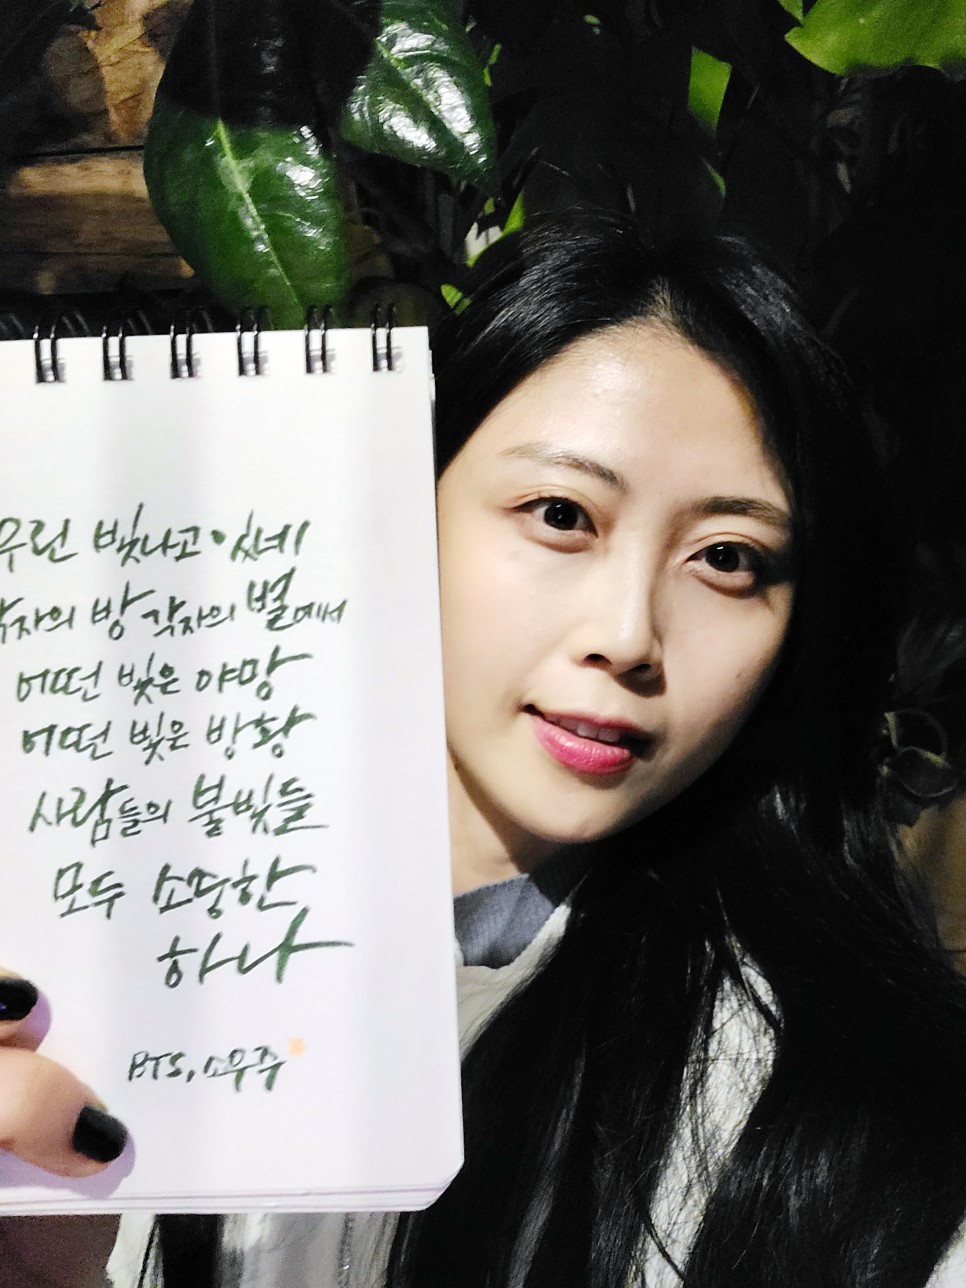 우린 빛나고 있네
각자의 방 각자의 별에서
어떤 빛은 야망
어떤 빛은 방황
사람들의 불빛들
모두 소중한
하나
BTS, 소우주